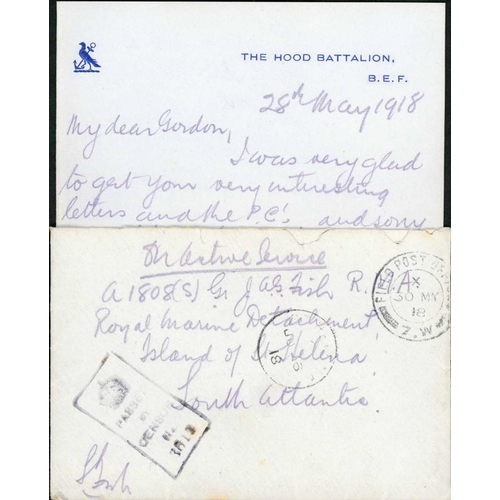 THE HOOD BATTALION,
B.E.F.
28th May 1918
My dear Gordon,
I was very glad
to get your very interesting
letters and the P.C's and sorry
On Active Service
A1808(S) Gr J.A.G. Fish R.M.A.
Royal Marine Detachment
Island of St Helena
South Atlantic
FIELD POST OFFICE
X
30 MY
18
Z.W.
18
PASSED
BY
CENSOR
No